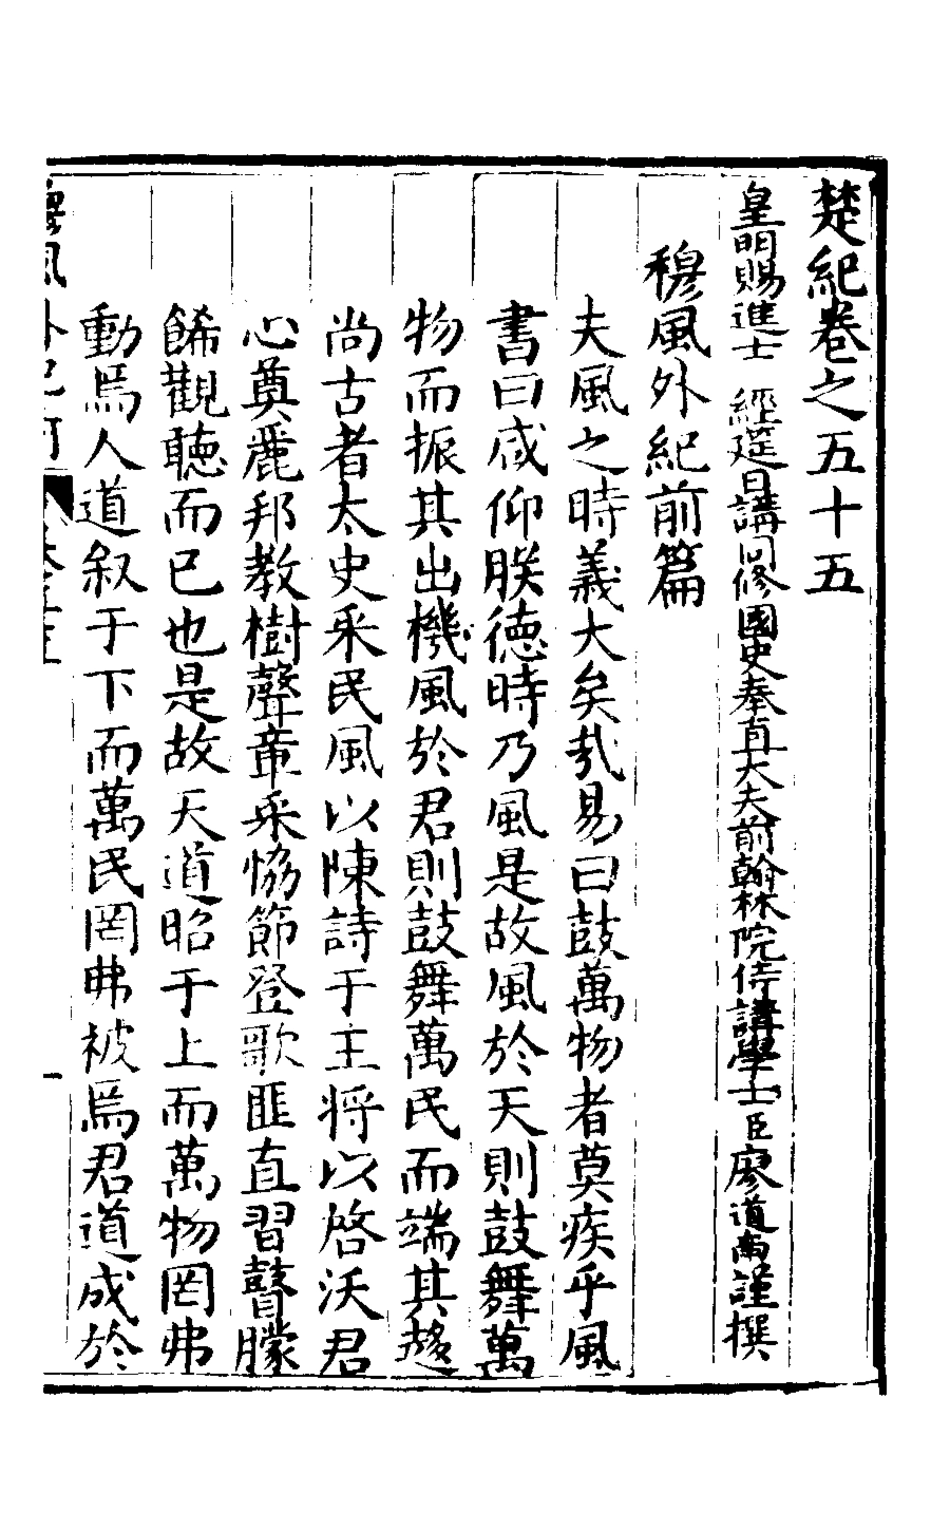 楚紀卷之五十五
皇明賜進士 經筵日講同修國史奉直大夫前翰林院侍講學士臣廖道南謹撰
穆風外紀前篇
夫風之時義大矣哉易曰鼓萬物者莫疾乎風
書曰咸仰朕德時乃風是故風於天則鼓舞萬
物而振其出機風於君則鼓舞萬民而端其趨
尚古者太史采民風以陳詩于王將以啓沃君
心奠麗邦教樹聲章采恊節登歌匪直習瞽朦
餙觀聽而已也是故天道昭于上而萬物罔弗
動焉人道叙于下而萬民罔弗被焉君道成於